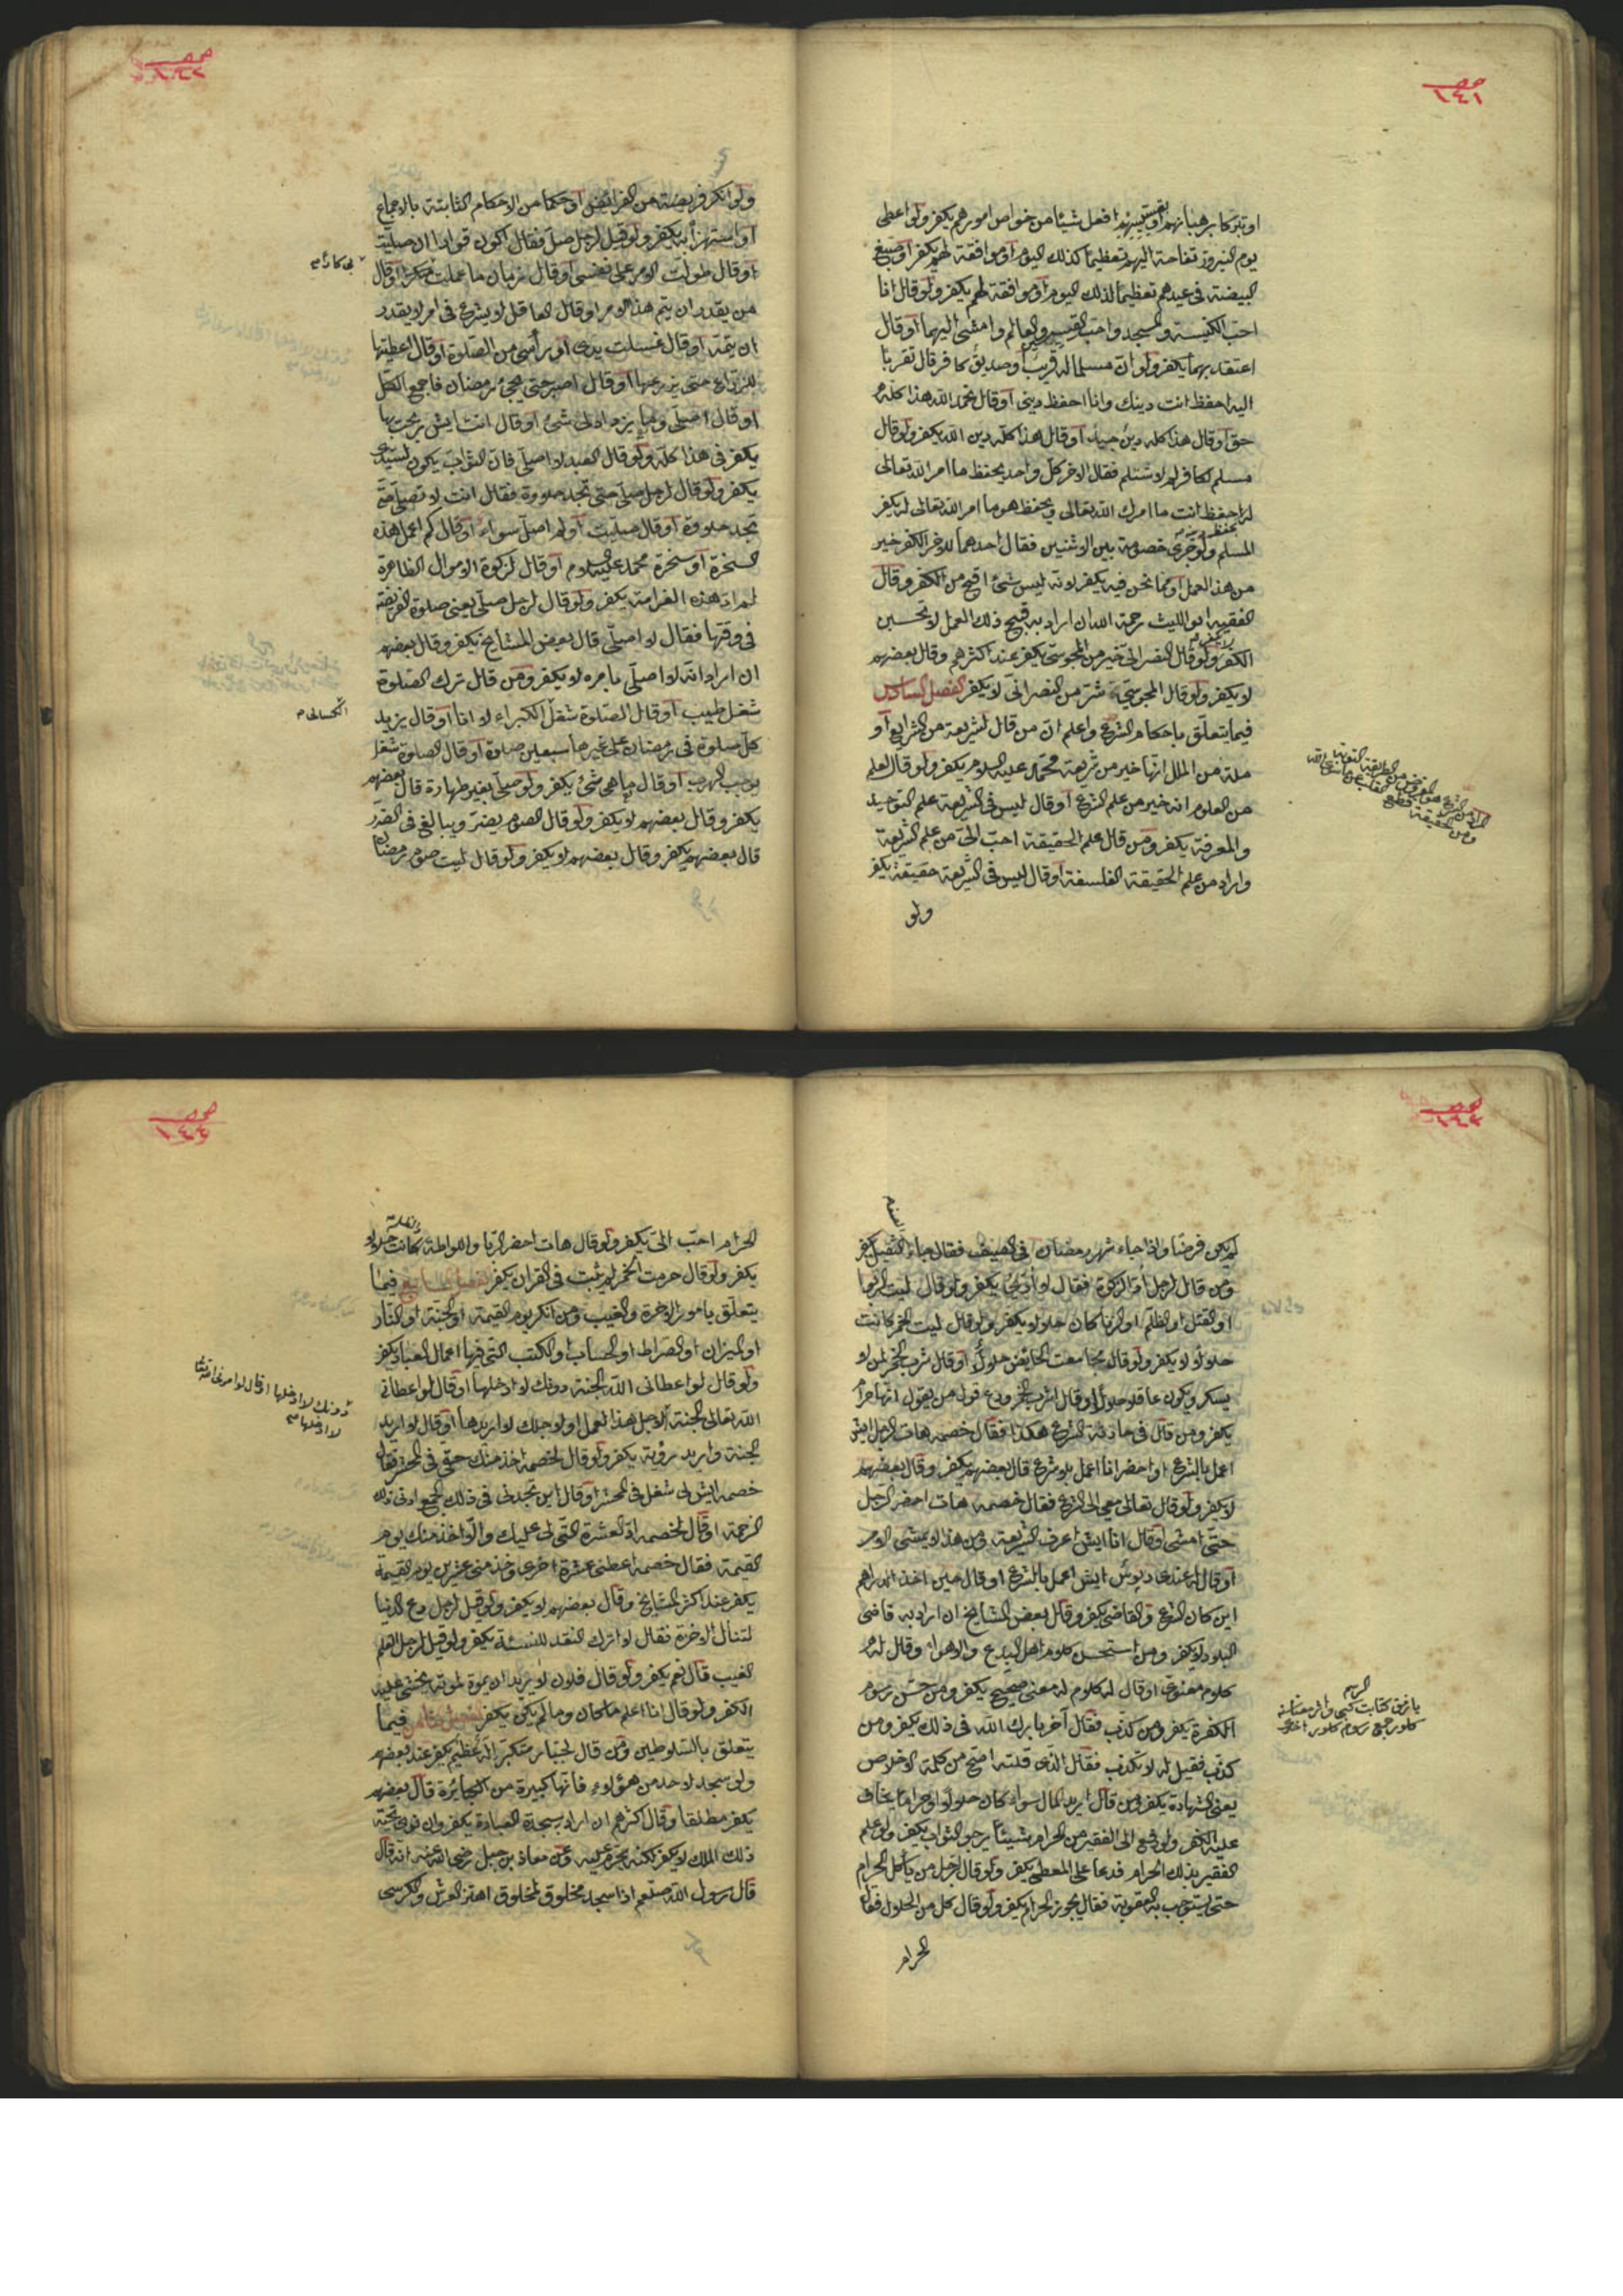 صحـ ١٤١
او تبركا برهبانهم او قسيسهم او فعل شيئا من خواص امورهم يكفر ولو اعطى
يوم النيروز تفاحة اليهم تعظيما كذلك اليوم او موافقة لهم يكفر او صبغ
البيضة فى عيدهم تعظيما لذلك اليوم او موافقة لهم يكفر ولو قال انا
احبّ الكنيسة والمسجد واحبّ القسيس والعالم وامشى اليهما او قال
اعتقد بهما يكفر ولو انّ مسلما له قريب او صديق كافر قال تقربا
اليه احفظ انت دينك وانا احفظ دينى او قال بحمد الله هذا كله
حق او قال هذا كله دين جيد او قال هذا كله دين الله يكفر ولو قال
مسلم لكافر لم لا تسلم فقال الاخر كل واحد يحفظ ما امر الله تعالى
له احفظ انت ما امرك الله تعالى ويحفظ هو ما امر الله تعالى له يكفر
المسلم ولو جرى خصومة بين الاثنين فقال احدهما للاخر الكفر خير
من هذا العمل او مما نحن فيه يكفر لانه ليس شئ اقبح من الكفر وقال
الفقيه ابو الليث رحمة الله ان اراد به قبيح ذلك العمل لا تحسين
الكفر ولو قال النصرانى خير من المجوسىّ يكفر عند اكثرهم وقال بعضهم
لا يكفر ولو قال المجوسىّ شرّ من النصرانىّ لا يكفر الفصل السادس
فيما يتعلّق باحكام الشرع واعلم انّ من قال لشريعة من الشرايع او
ملة من الملل انّها خير من شريعة محمّد عليه السلام يكفر ولو قال لعلم
من العلوم انه خير من علم الشرع او قال ليس فى الشريعة علم التوحيد
والمعرفة يكفر ومن قال علم الحقيقة احبّ الىّ من علم الشريعة
واراد من علم الحقيقة الفلسفة او قال ليس فى الشريعة حقيقة يكفر
ولو
صحـ ١٤٢
ولو انكر فريضة من الفرائض او حكما من الاحكام الثابتة بالاجماع
او استهزأ به يكفر ولو قيل لرجل صلّ فقال اكون قوادا ان صليت
او قال طولت الامر على نفسى او قال زمان ما عملت منكرا او قال
من يقدر ان يتم هذا الامر او قال العاقل لا يشرع فى امر لا يقدر
ان يتمّه او قال غسلت يدى او رأسى من الصلوة او قال اعطيتها
للزرّاع حتى يزرعها او قال اصبر حتى يجئ رمضان فاجمع الكل
او قال اصلّى وما يزداد لى شئ او قال انت ايش ربحت بها
يكفر فى هذا كلّه ولو قال العبد لا اصلّى فانّ الثواب يكون لسيّدى
يكفر ولو قال لرجل صلّ حتى تجد حلاوة فقال انت لا تصلّ حتى
تجد حلاوة او قال صلّيت او لم اصلّ سواء او قال كم اعمل هذه
السخرة او سخرة محمد عليه السلام او قال لزكوة الاموال الظاهرة
لم اؤد هذه الغرامة يكفر ولو قال لرجل صلّ يعنى صلوة الفريضة
فى وقتها فقال لا اصلّى قال بعض المشايخ يكفر وقال بعضهم
ان اراد انه لا اصلّى بامره لا يكفر ومن قال ترك الصلوة
شغل طيب او قال الصلوة شغل الكبراء لا انا او قال يزيد
كل صلوة فى رمضان على غيرها سبعين صلوة او قال الصلوة شغل
يوجب الهرب او قال ما هى شئ يكفر ولو صلّى بغير طهارة قال بعضهم
يكفر وقال بعضهم لا يكفر ولو قال الصوم يضر ويبالغ فى الضرر
قال بعضهم يكفر وقال بعضهم لا يكفر ولو قال ليت صوم رمضان
صحـ ١٤٣
لم يكن فرضا واذا جاء شهر رمضان فى الصيف فقال جاء الثقيل يكفر
ومن قال لرجل ادّ الزكوة فقال لا اؤدّى يكفر ولو قال ليت الربوا
او القتل او الظلم او الزنا كان حلالا يكفر ولو قال ليت الخمر كانت
حلالا لا يكفر ولو قال مجامعت الحائض حلال او قال شرب الخمر لمن لا
يسكر ويكون عاقلا حلال او قال اشرب الخمر ودع قول من يقول انها حرام
يكفر ومن قال فى حادثة الشرع هكذا فقال خصمه هات الرجل ايش
اعمل بالشرع او احضر انا اعمل بلا شرع قال بعضهم يكفر وقال بعضهم
لا يكفر ولو قال تعالى معى الى الشرع فقال خصمه هات احضر الرجل
حتى امشى او قال انا ايش اعرف الشريعة ومن هذا لا يمشى الامر
او قال له عندى دبوس ايش اعمل بالشرع او قال حين اخذ الدراهم
اين كان الشرع والقاضى يكفر وقال بعض المشايخ ان اراد به قاضى
البلاد لا يكفر ومن استحسن كلام اهل البدع والاهواء وقال له
كلام معنوىّ او قال له كلام له معنى صحيح يكفر ومن حسّن رسوم
الكفرة يكفر ومن كذب فقال آخر بارك الله فى ذلك يكفر ومن
كذب فقيل له لا تكذب فقال الذى قلته اصح من كلمة الاخلاص
يعنى الشهادة يكفر ومن قال اريد المال سواء كان حلالا او حراما يخاف
عليه الكفر ولو دفع الى الفقير من الحرام شيئا يرجو الثواب يكفر ولو علم
الفقير بذلك الحرام فدعا على المعطى يكفر ولو قال لرجل من يأكل الحرام
حتى يستوجب به العقوبة فقال يجوز الحرام يكفر ولو قال كل من الحلال فقال
الحرام
صحـ ١٤٤
الحرام احبّ الىّ يكفر ولو قال هات احضر الربا واللواطة كانت حلالا
يكفر ولو قال حرمت الخمر لم يثبت فى القران يكفر الفصل السابع فيما
يتعلّق بامور الاخرة والغيب ومن انكر يوم القيمة او الجنّة او النار
او الميزان او الصراط او الحساب او الكتب التى فيها اعمال العباد يكفر
ولو قال لو اعطانى الله الجنة دونك لا ادخلها او قال لو اعطانى
الله تعالى الجنة لاجل هذا العمل او لاجلك لا اريدها او قال لا اريد
الجنة واريد رؤية يكفر ولو قال لخصمه اخذ منك حقى فى المحشر فقال
خصمه ايش لى شغل فى المحشر او قال اين تجدنى فى ذلك الجمع او فى ذلك
الزحمة او قال لخصمه ادّ العشرة التى لى عليك والا اخذ منك يوم
القيمة فقال خصمه اعطنى عشرة اخرى وخذ منى عشرين يوم القيمة
يكفر عند اكثر المشايخ وقال بعضهم لا يكفر ولو قيل لرجل دع الدنيا
لتنال الاخرة فقال لا اترك النقد للنسيئة يكفر ولو قيل لرجل اتعلم
الغيب قال نعم يكفر ولو قال فلان لا يريد ان يموت لموته يخشى عليه
الكفر ولو قال انا اعلم ما كان وما لم يكن يكفر الفصل الثامن فيما
يتعلق بالسلاطين ومن قال لجبار متكبر اله عظيم يكفر عند بعضهم
ولو سجد لاحد من هؤلاء فانها كبيرة من الكبائر قال بعضهم
يكفر مطلقا وقال اكثرهم ان اراد سجدة العبادة يكفر وان نوى تحية
ذلك الملك لا يكفر لكنه يحرم عليه وعن معاذ بن جبل رضى الله عنه انه قال
قال رسول الله صلعم اذا سجد مخلوق لمخلوق اهتز العرش والكرسى
دونك لا ادخلها او قال لو امرنى الله تعالى
لا ادخلها صح